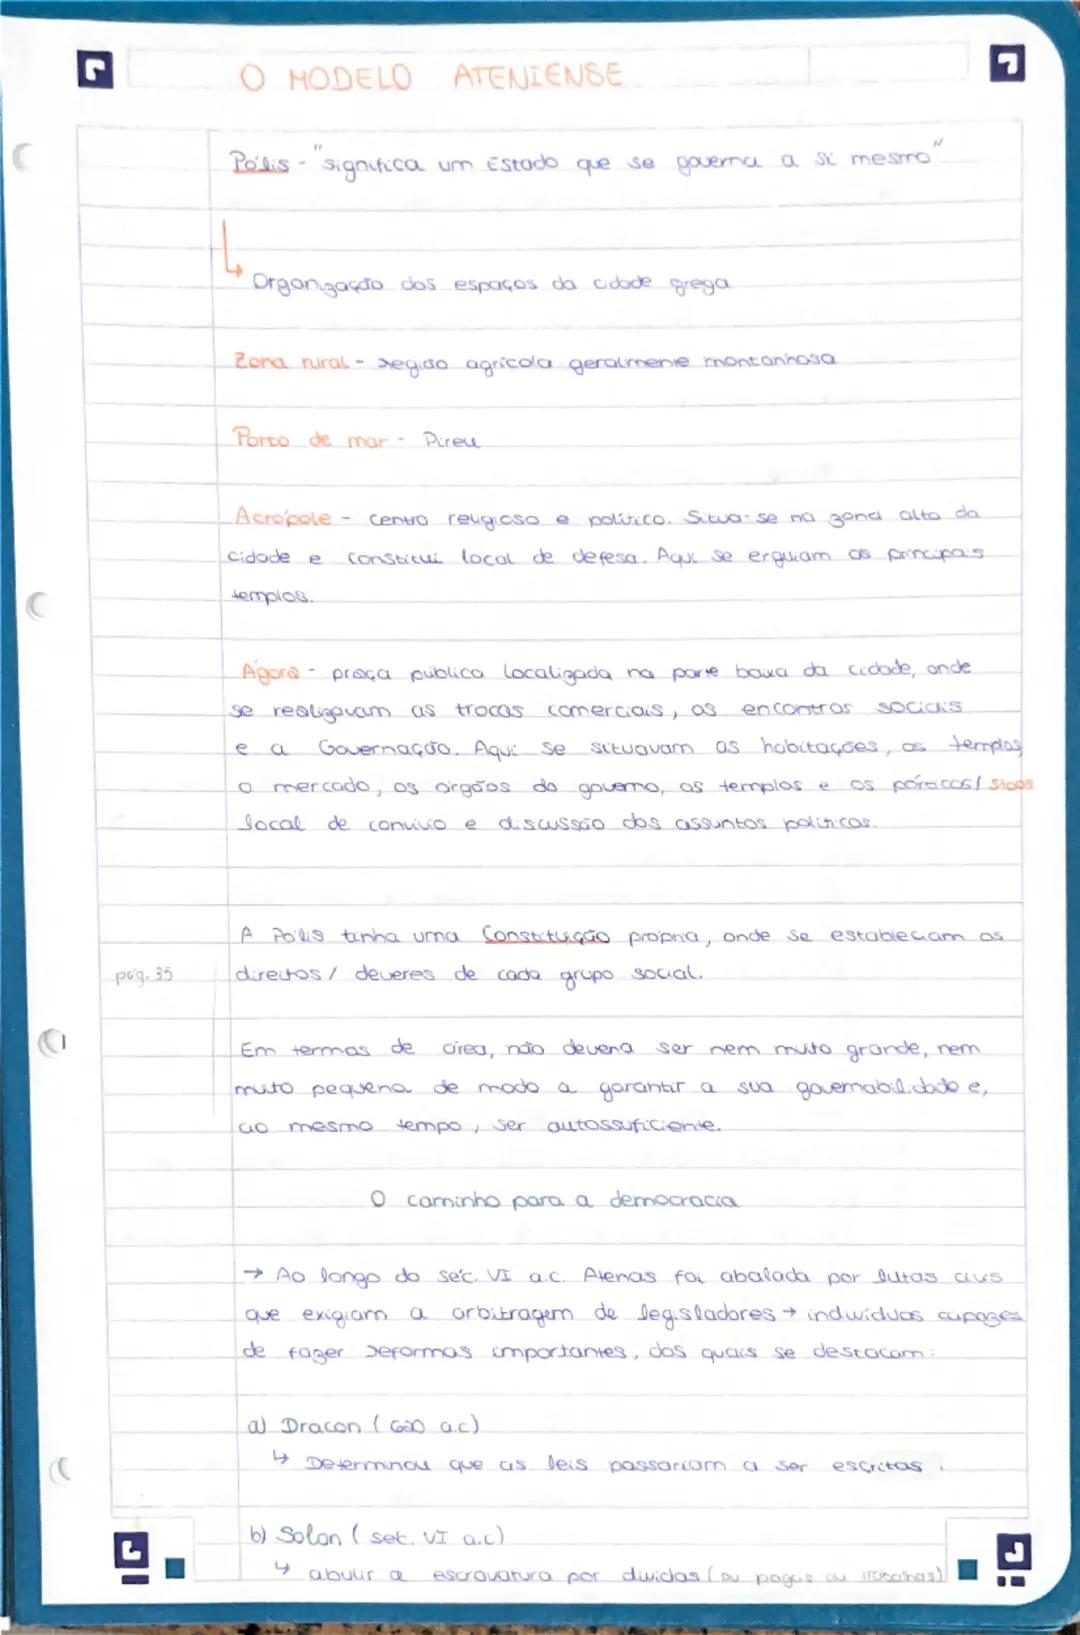 O MODELO ATENIENSE
Pólis - "significa um Estado que se governa a si mesmo"
↳ Organização dos espaços da cidade grega
Zona rural - região agrícola geralmente montanhosa
Porto de mar - Pireu
Acrópole - centro religioso e político. Situa-se na zona alta da
cidade e constitui local de defesa. Aqui se erguiam os principais
templos.
Ágora - praça pública localizada na parte baixa da cidade, onde
se realizavam as trocas comerciais, os encontros sociais
e a Governação. Aqui se situavam as habitações, os templos
o mercado, os orgãos do governo, os templos e os pórticos/ Stoas
local de convívio e discussão dos assuntos políticos.
A Pólis tinha uma Constituição própria, onde se estabeleciam os
pág. 35
direitos / deveres de cada grupo social.
Em termos de área, não deveria ser nem muito grande, nem
muito pequena de modo a garantir a sua governabilidade e,
ao mesmo tempo, ser autossuficiente.
O caminho para a democracia
→ Ao longo do séc. VI a.C. Atenas foi abalada por lutas civis
que exigiam a arbitragem de legisladores → indivíduos capazes
de fazer reformas importantes, dos quais se destacam:
a) Dracon (620 a.c)
↳ Determinou que as leis passariam a ser escritas.
b) Solon (set. VI a.c)
↳ abulir a escravatura por dividas (ou pagas ou trabalhas)